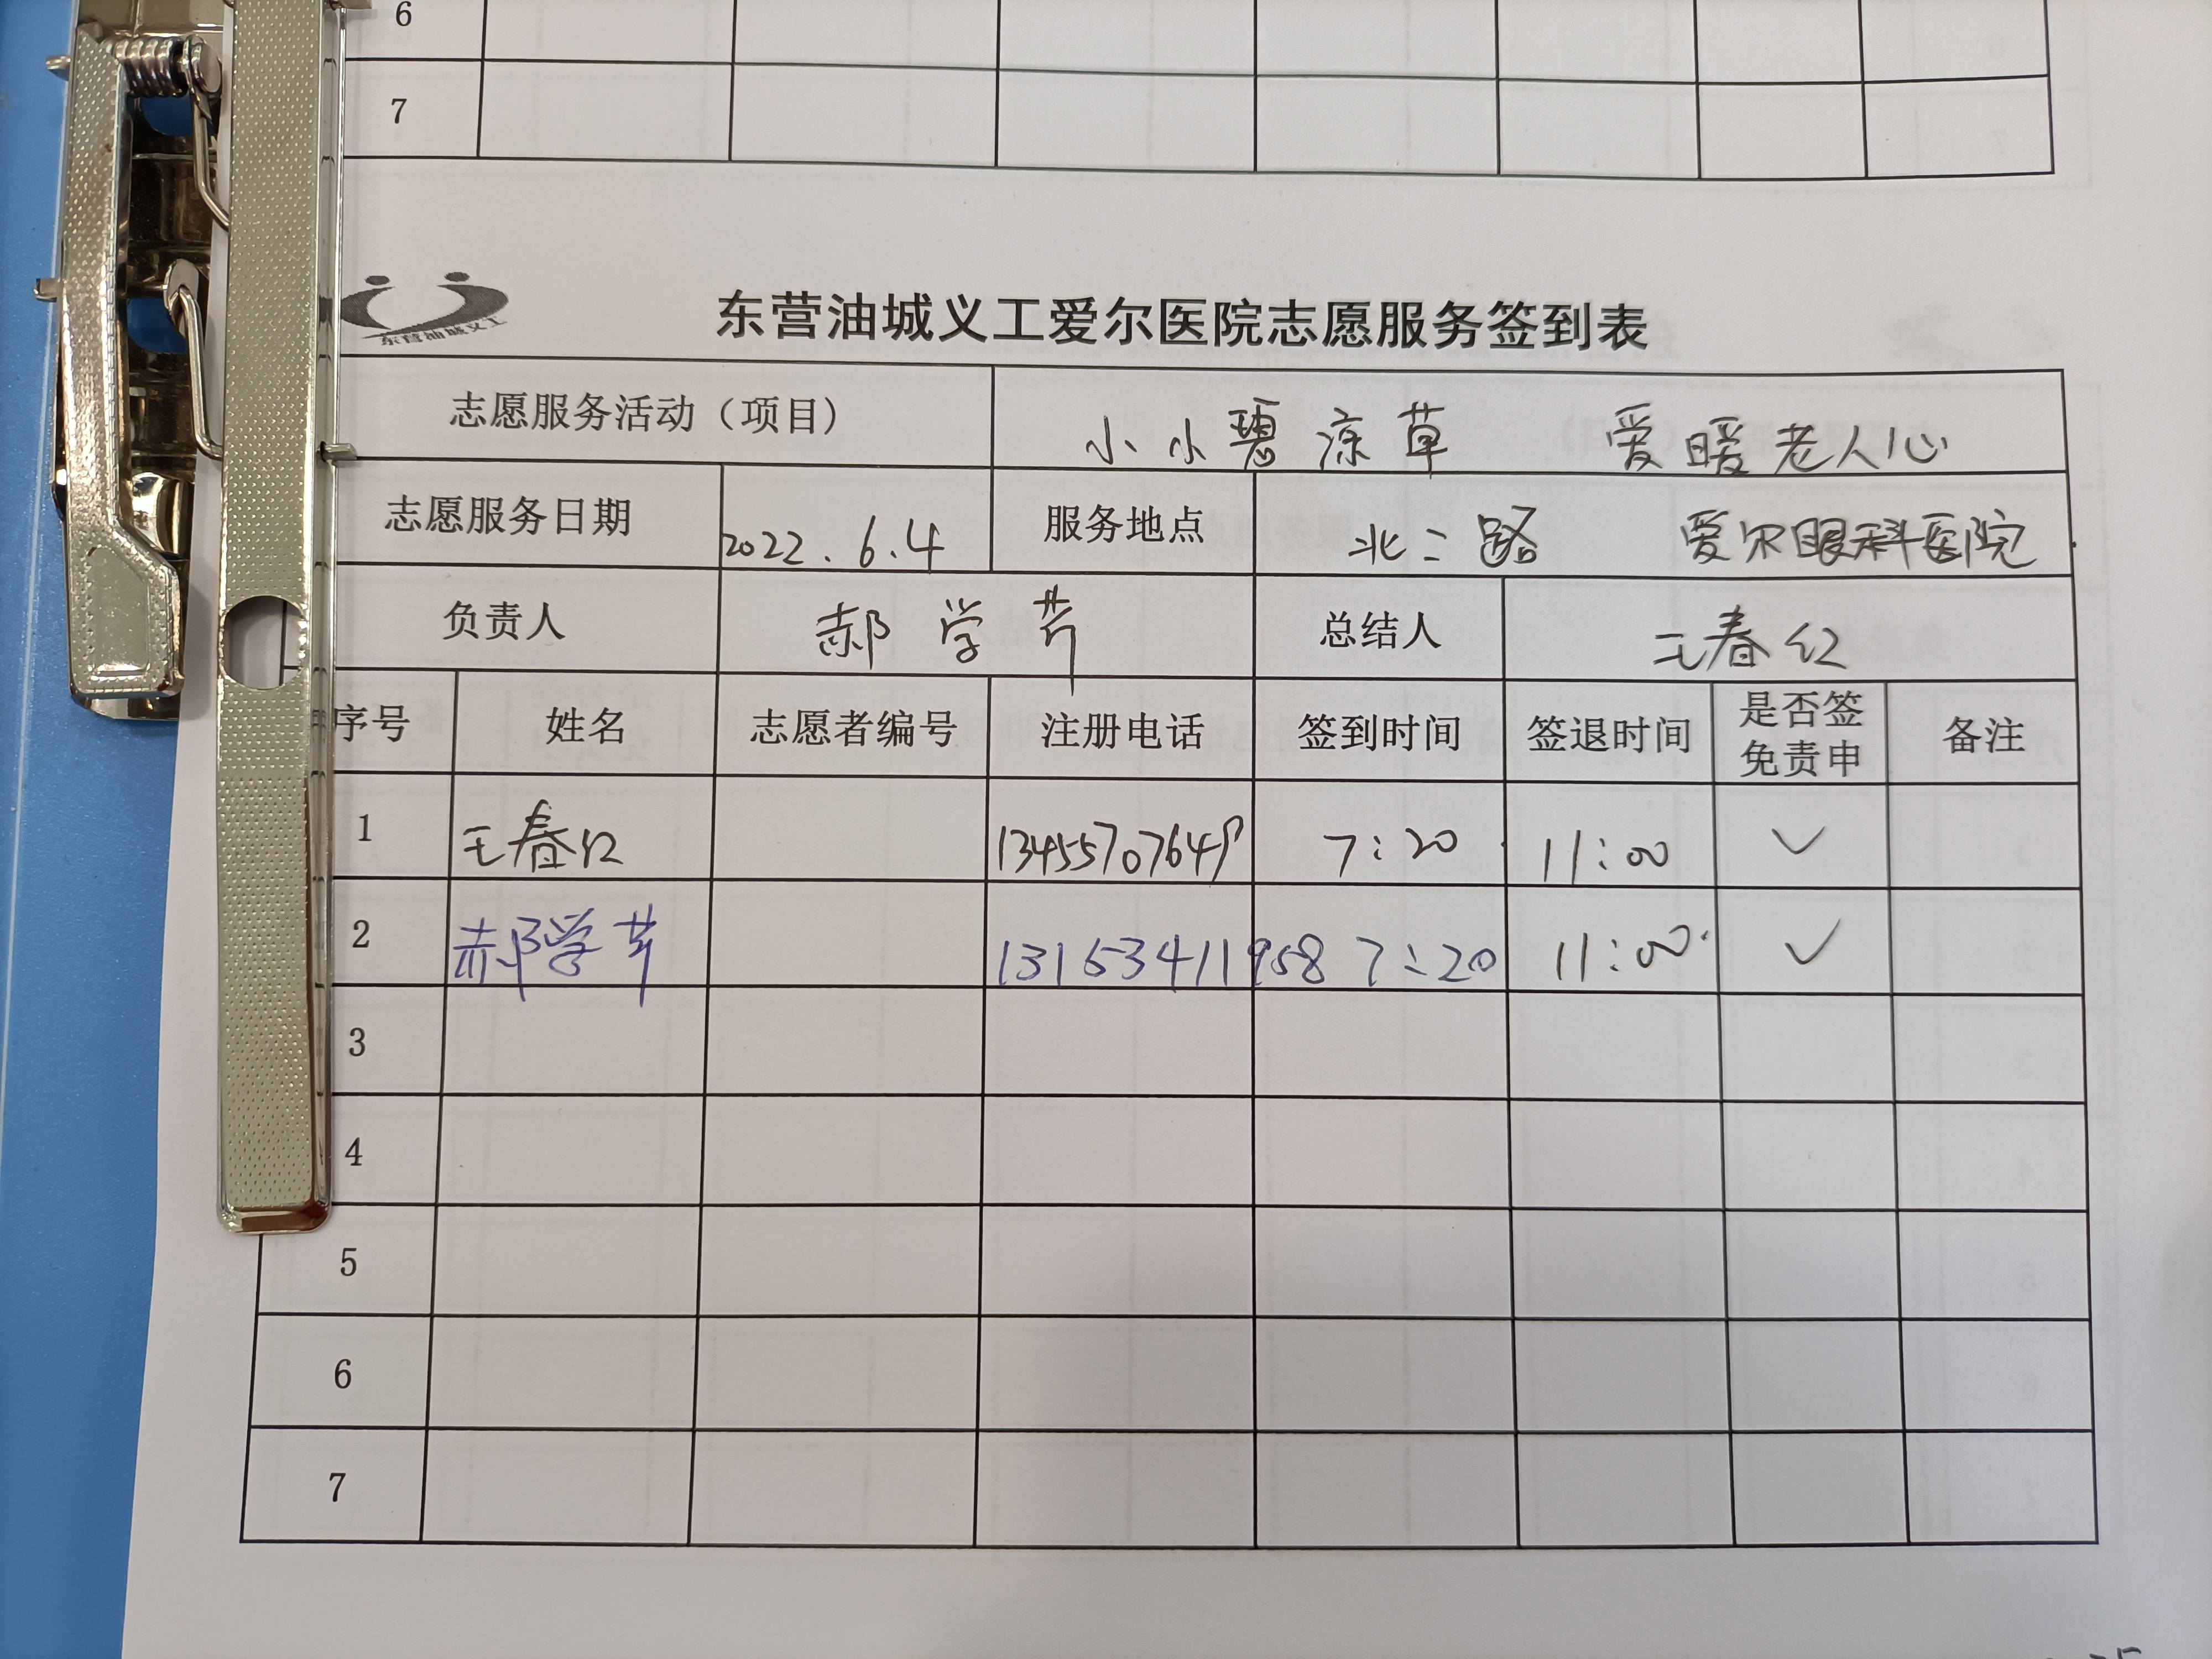 6
7
东营油城义工
东营油城义工爱尔医院志愿服务签到表
志愿服务活动（项目） 小小碧凉草 爱暖老人心
志愿服务日期 2022.6.4 服务地点 北二路 爱尔眼科医院
负责人 郝学芹 总结人 王春红
序号 姓名 志愿者编号 注册电话 签到时间 签退时间 是否签免责申 备注
1 王春红 13455707649 7:20 11:00 ✓
2 郝学芹 13153411958 7:20 11:00 ✓
3
4
5
6
7